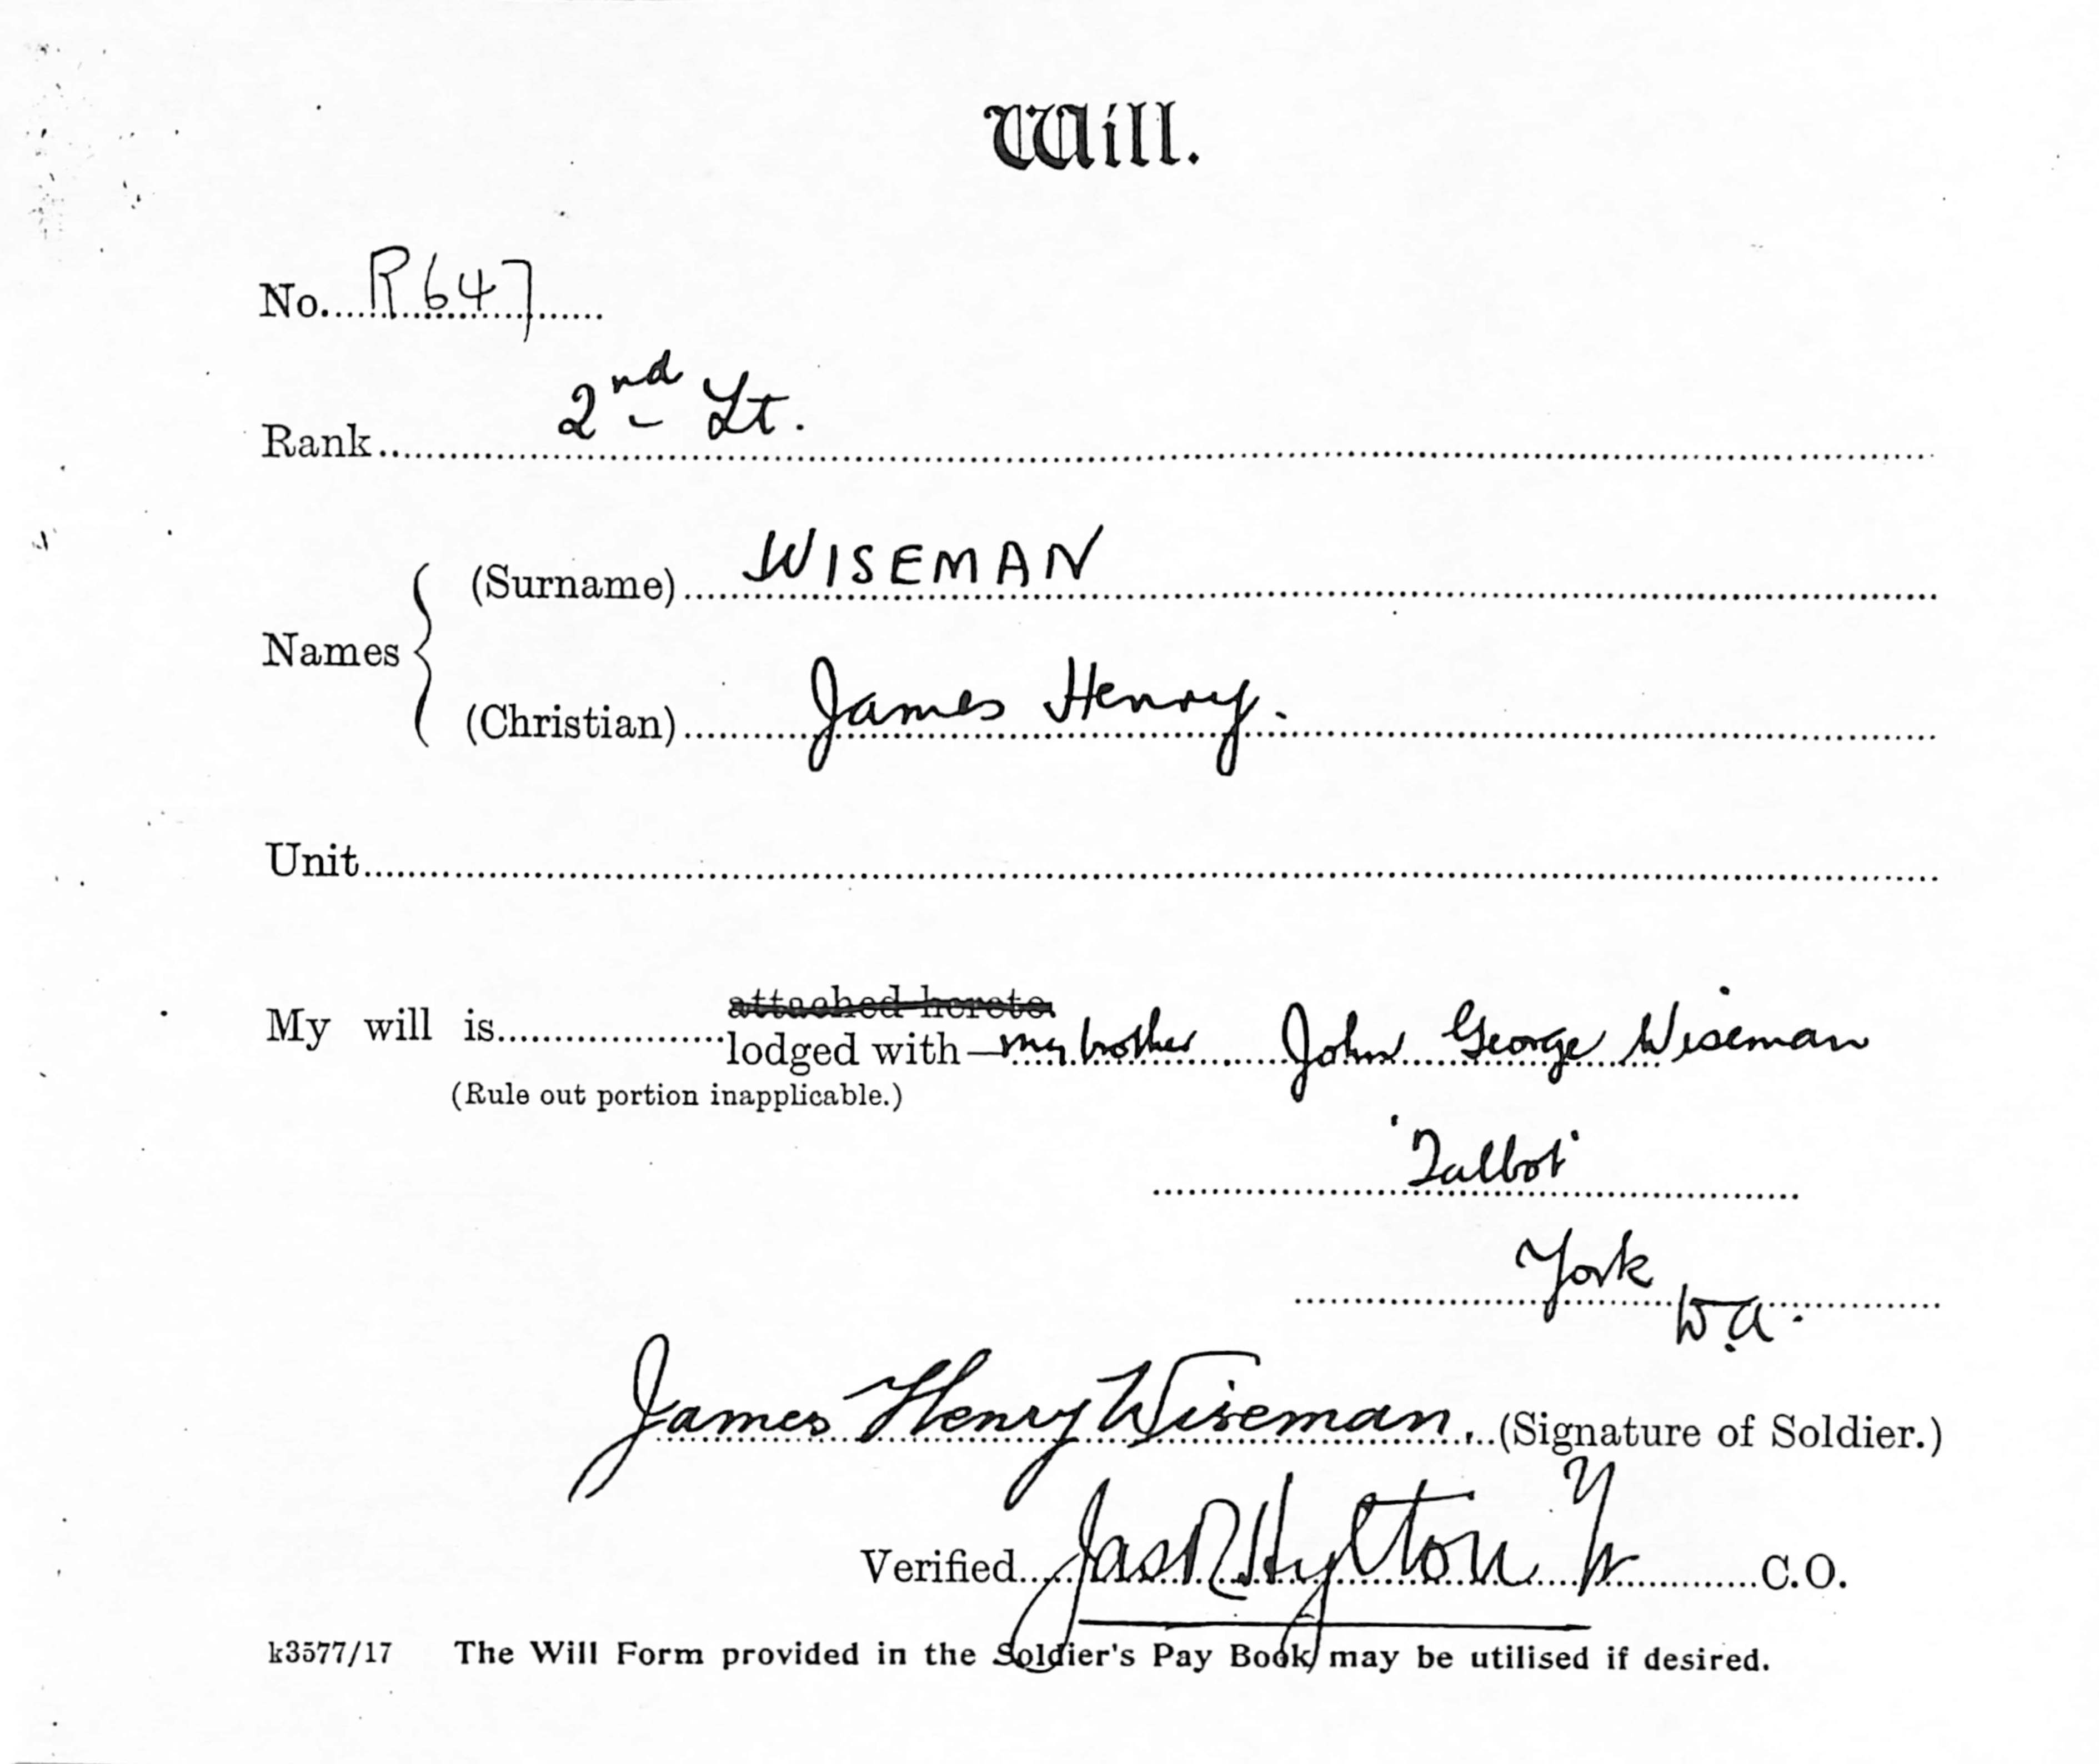 Will.
No. R647
Rank 2nd Lt.
(Surname) WISEMAN
Names
(Christian) James Henry.
Unit
attached hereto.
My will is lodged with my brother John George Wiseman
(Rule out portion inapplicable.)
'Talbot'
York
W.A.
James Henry Wiseman. (Signature of Soldier.)
Verified Jas R Hylton C.O.
k3577/17 The Will Form provided in the Soldier's Pay Book may be utilised if desired.